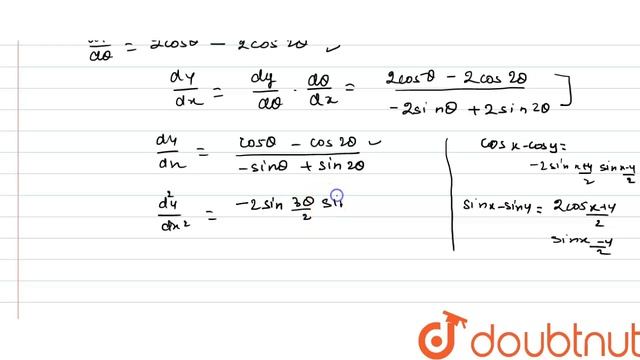 dθ = 2cosθ - 2cos2θ ✓
dy/dx = dy/dθ · dθ/dx = (2cosθ - 2cos2θ)/(-2sinθ + 2sin2θ) ]
dy/dx = (cosθ - cos2θ)/(-sinθ + sin2θ) ✓
d²y/dx² = -2sin 3θ/2 si
cosx-cosy=
-2sin x+y/2 sin x-y/2
sinx-siny= 2cos x+y/2
sin x-y/2
doubtnut